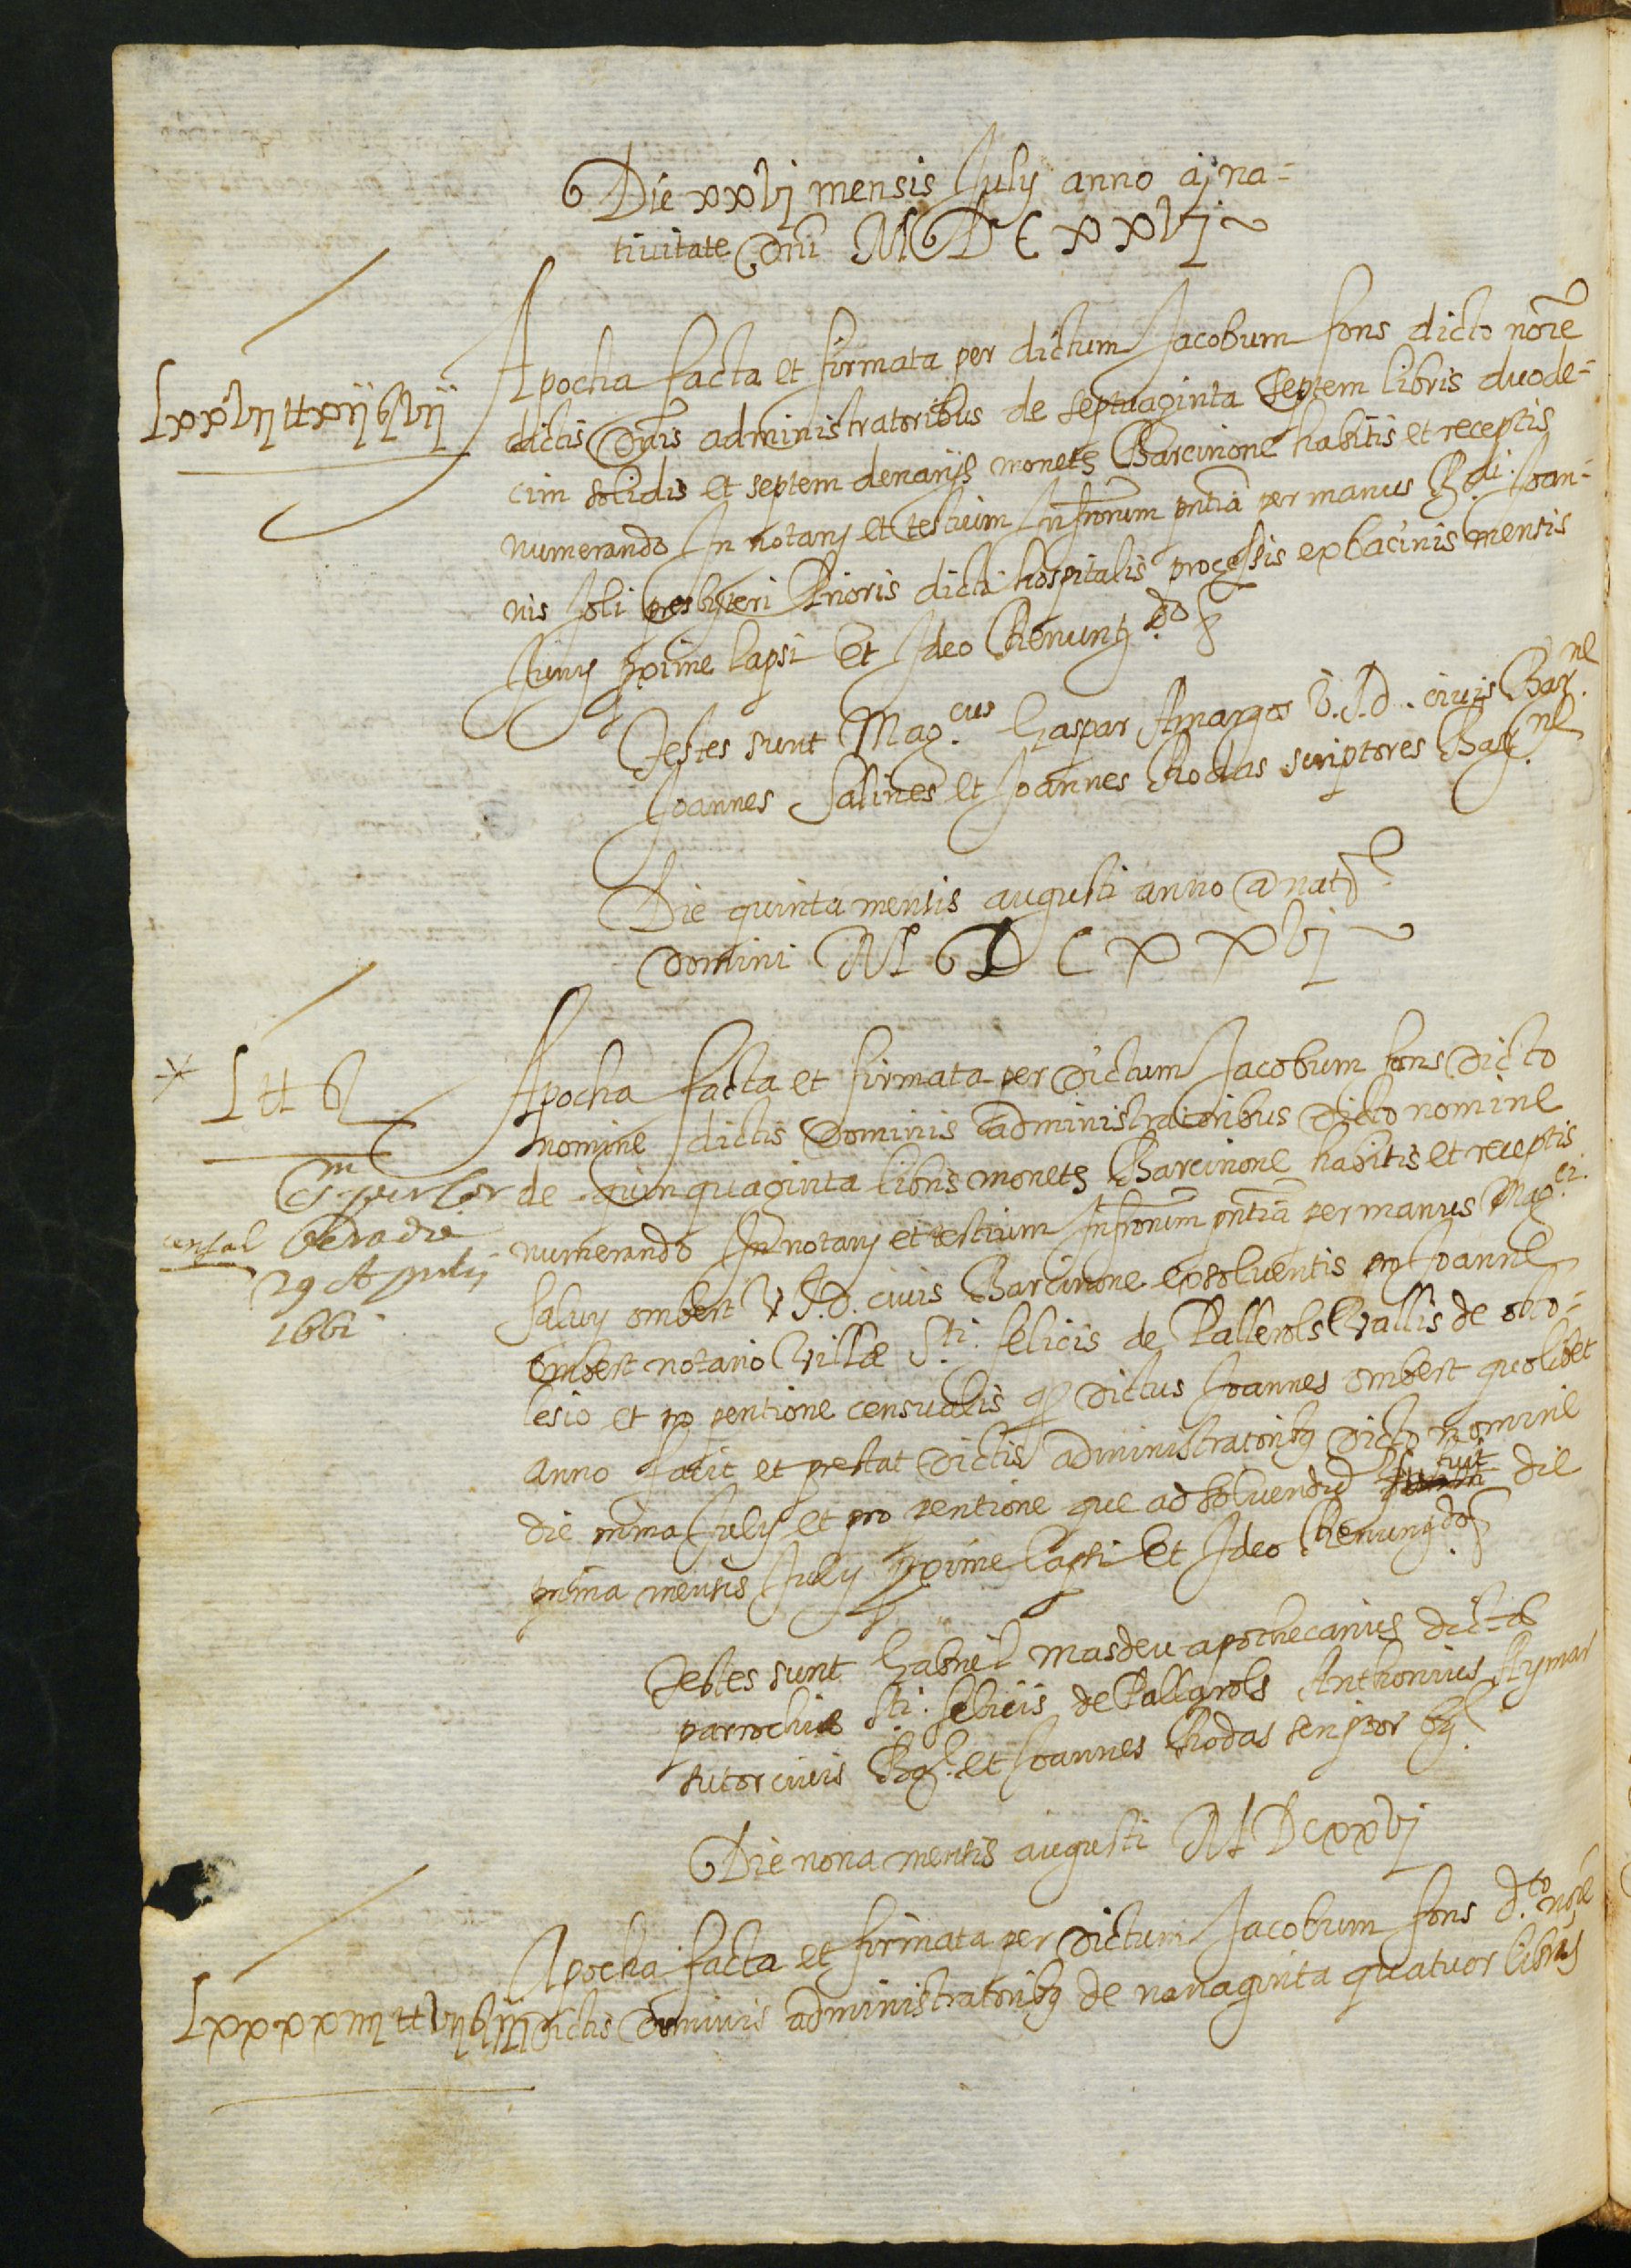 Die xxvj mensis July anno a na-
tiuitate Dni MDCxxvj
Apocha facta et firmata per dictum Jacobum fons dicto noĩe
dictis Dnis administratoribus de septuaginta septem libris duode-
Lxxvij tt xij ß vij
cim solidis et septem denarijs monete Barcinone habitis et receptis
numerando In notarij et testium Infrorum pntia per manus Rdi. Joan-
nis Soli presbyteri Prioris dicti hospitalis processis ex bacinis mensis
Juny proxime lapsi Et Ideo Renun do
Testes sunt Mag.cus Gaspar Amargos V.J.D. ciuis Bar.ne
Joannes Salines et Joannes Rodas scriptores Bar.ne
Die quinta mensis augusti anno a nat.e
Domini MDCxxvj
Apocha facta et firmata per Dictum Jacobum fons Dicto
L tt ß
nomine dictis Dominis administratoribus dicto nomine
de quinquaginta libris monete Barcinone habitis et receptis
numerando In notarij et testium Infrorum pntia per manus Mag.ci
censal
29
1661
Saluy ombert V.J.D. ciuis Barcinone exsoluentis pro Joanne
ombert notario Villæ Sti. felicis de Pallerols Vallis de osto-
lesio et pro pentione censualis q dictus Joannes ombert quolibet
anno facit et prestat Dictis administratoribus dicto nomine
die prima July et pro pentione que ad soluendum fuit die
prima mensis July proxime lapsi Et Ideo Renun do
Testes sunt Gabriel masdeu apothecarius dictæ
parrochie Sti. felicis de Pallarols Anthonius Aymar
sutor ciuis Bar. et Joannes Rodas scriptor
Die nona mensis augusti MDCxxvj
Apocha facta et firmata per dictum Jacobum fons d.to noe
Lxxxxiiij tt
dictis Dominis administratoribus de nonaginta quatuor libris